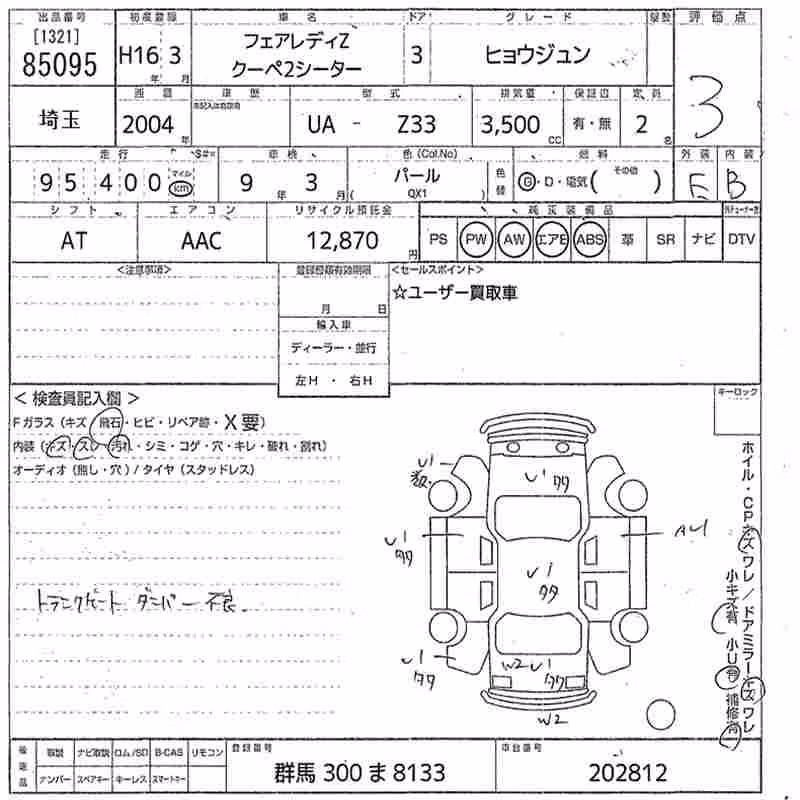 出品番号 初度登録 車名 ドア グレード 評価点
[1321]
85095 H16年 3月 フェアレディZ 3 ヒョウジュン 3
クーペ2シーター
埼玉
年 車歴 型式 排気量 定員
2004年 UA - Z33 3,500CC 有・無 2名
走行 色(Col.No) 燃料 外装 内装
95400 マイル km 9年 3月 パール 色替 G・D・電気( その他 ) E B
( QX1 )
シフト エアコン リサイクル預託金
AT AAC 12,870円 PS PW AW エアB ABS 革 SR ナビ DTV
<注意事項> <セールスポイント>
☆ユーザー買取車
月 日
輸入車
ディーラー・並行
左H ・ 右H
<検査員記入欄> キーロック
Fガラス(キズ・飛石・ヒビ・リペア跡・X要)
内装(キズ・スレ・汚れ・シミ・コゲ・穴・キレ・破れ・割れ)
オーディオ(無し・穴)/タイヤ(スタッドレス)
U1
U1
タタ
U1
タタ
AU1
U1
タタ
トランクゲート ダンパー 不良
U1
タタ
W2 U1
タタ
W2
ホイル・CPキズワレ/ドアミラーキズワレ
小キズ有 小U有 補修有
後返品 取説 ナビ取説 ロム/SD B-CAS リモコン 登録番号 車台番号
ナンバー スペアキー キーレス スマートキー 群馬 300 ま 8133 202812